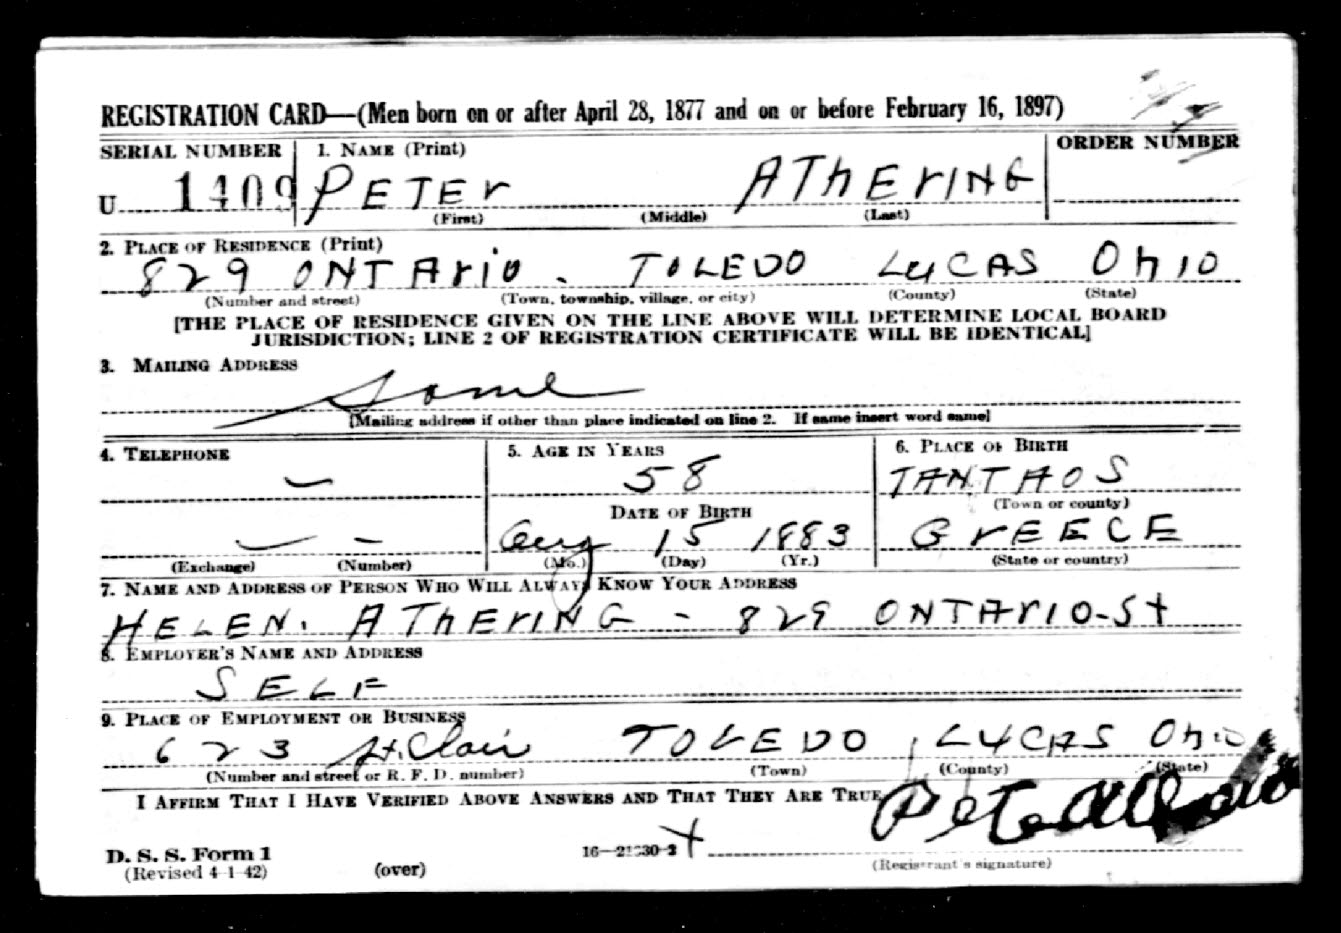 REGISTRATION CARD—(Men born on or after April 28, 1877 and on or before February 16, 1897)
SERIAL NUMBER
1. NAME (Print)
ORDER NUMBER
U 1409
PETEr AThErING
(First) (Middle) (Last)
2. PLACE OF RESIDENCE (Print)
829 ONTArio. TOLEDO LUCAS OhIO
(Number and street) (Town, township, village, or city) (County) (State)
[THE PLACE OF RESIDENCE GIVEN ON THE LINE ABOVE WILL DETERMINE LOCAL BOARD
JURISDICTION; LINE 2 OF REGISTRATION CERTIFICATE WILL BE IDENTICAL]
3. MAILING ADDRESS
Same
[Mailing address if other than place indicated on line 2. If same insert word same]
4. TELEPHONE
5. AGE IN YEARS
6. PLACE OF BIRTH
—
58
TANTAOS
(Town or county)
DATE OF BIRTH
— –
Aug 15 1883
GrEECE
(Exchange) (Number)
(Mo.) (Day) (Yr.)
(State or country)
7. NAME AND ADDRESS OF PERSON WHO WILL ALWAYS KNOW YOUR ADDRESS
HELEN. AThErING - 829 ONTArIO-St
8. EMPLOYER'S NAME AND ADDRESS
SELF
9. PLACE OF EMPLOYMENT OR BUSINESS
623 St. Clair TOLEDO, LUCAS OhIO
(Number and street or R. F. D. number) (Town) (County) (State)
I AFFIRM THAT I HAVE VERIFIED ABOVE ANSWERS AND THAT THEY ARE TRUE
Pete
D. S. S. Form 1
(Revised 4-1-42) (over)
(Registrant's signature)